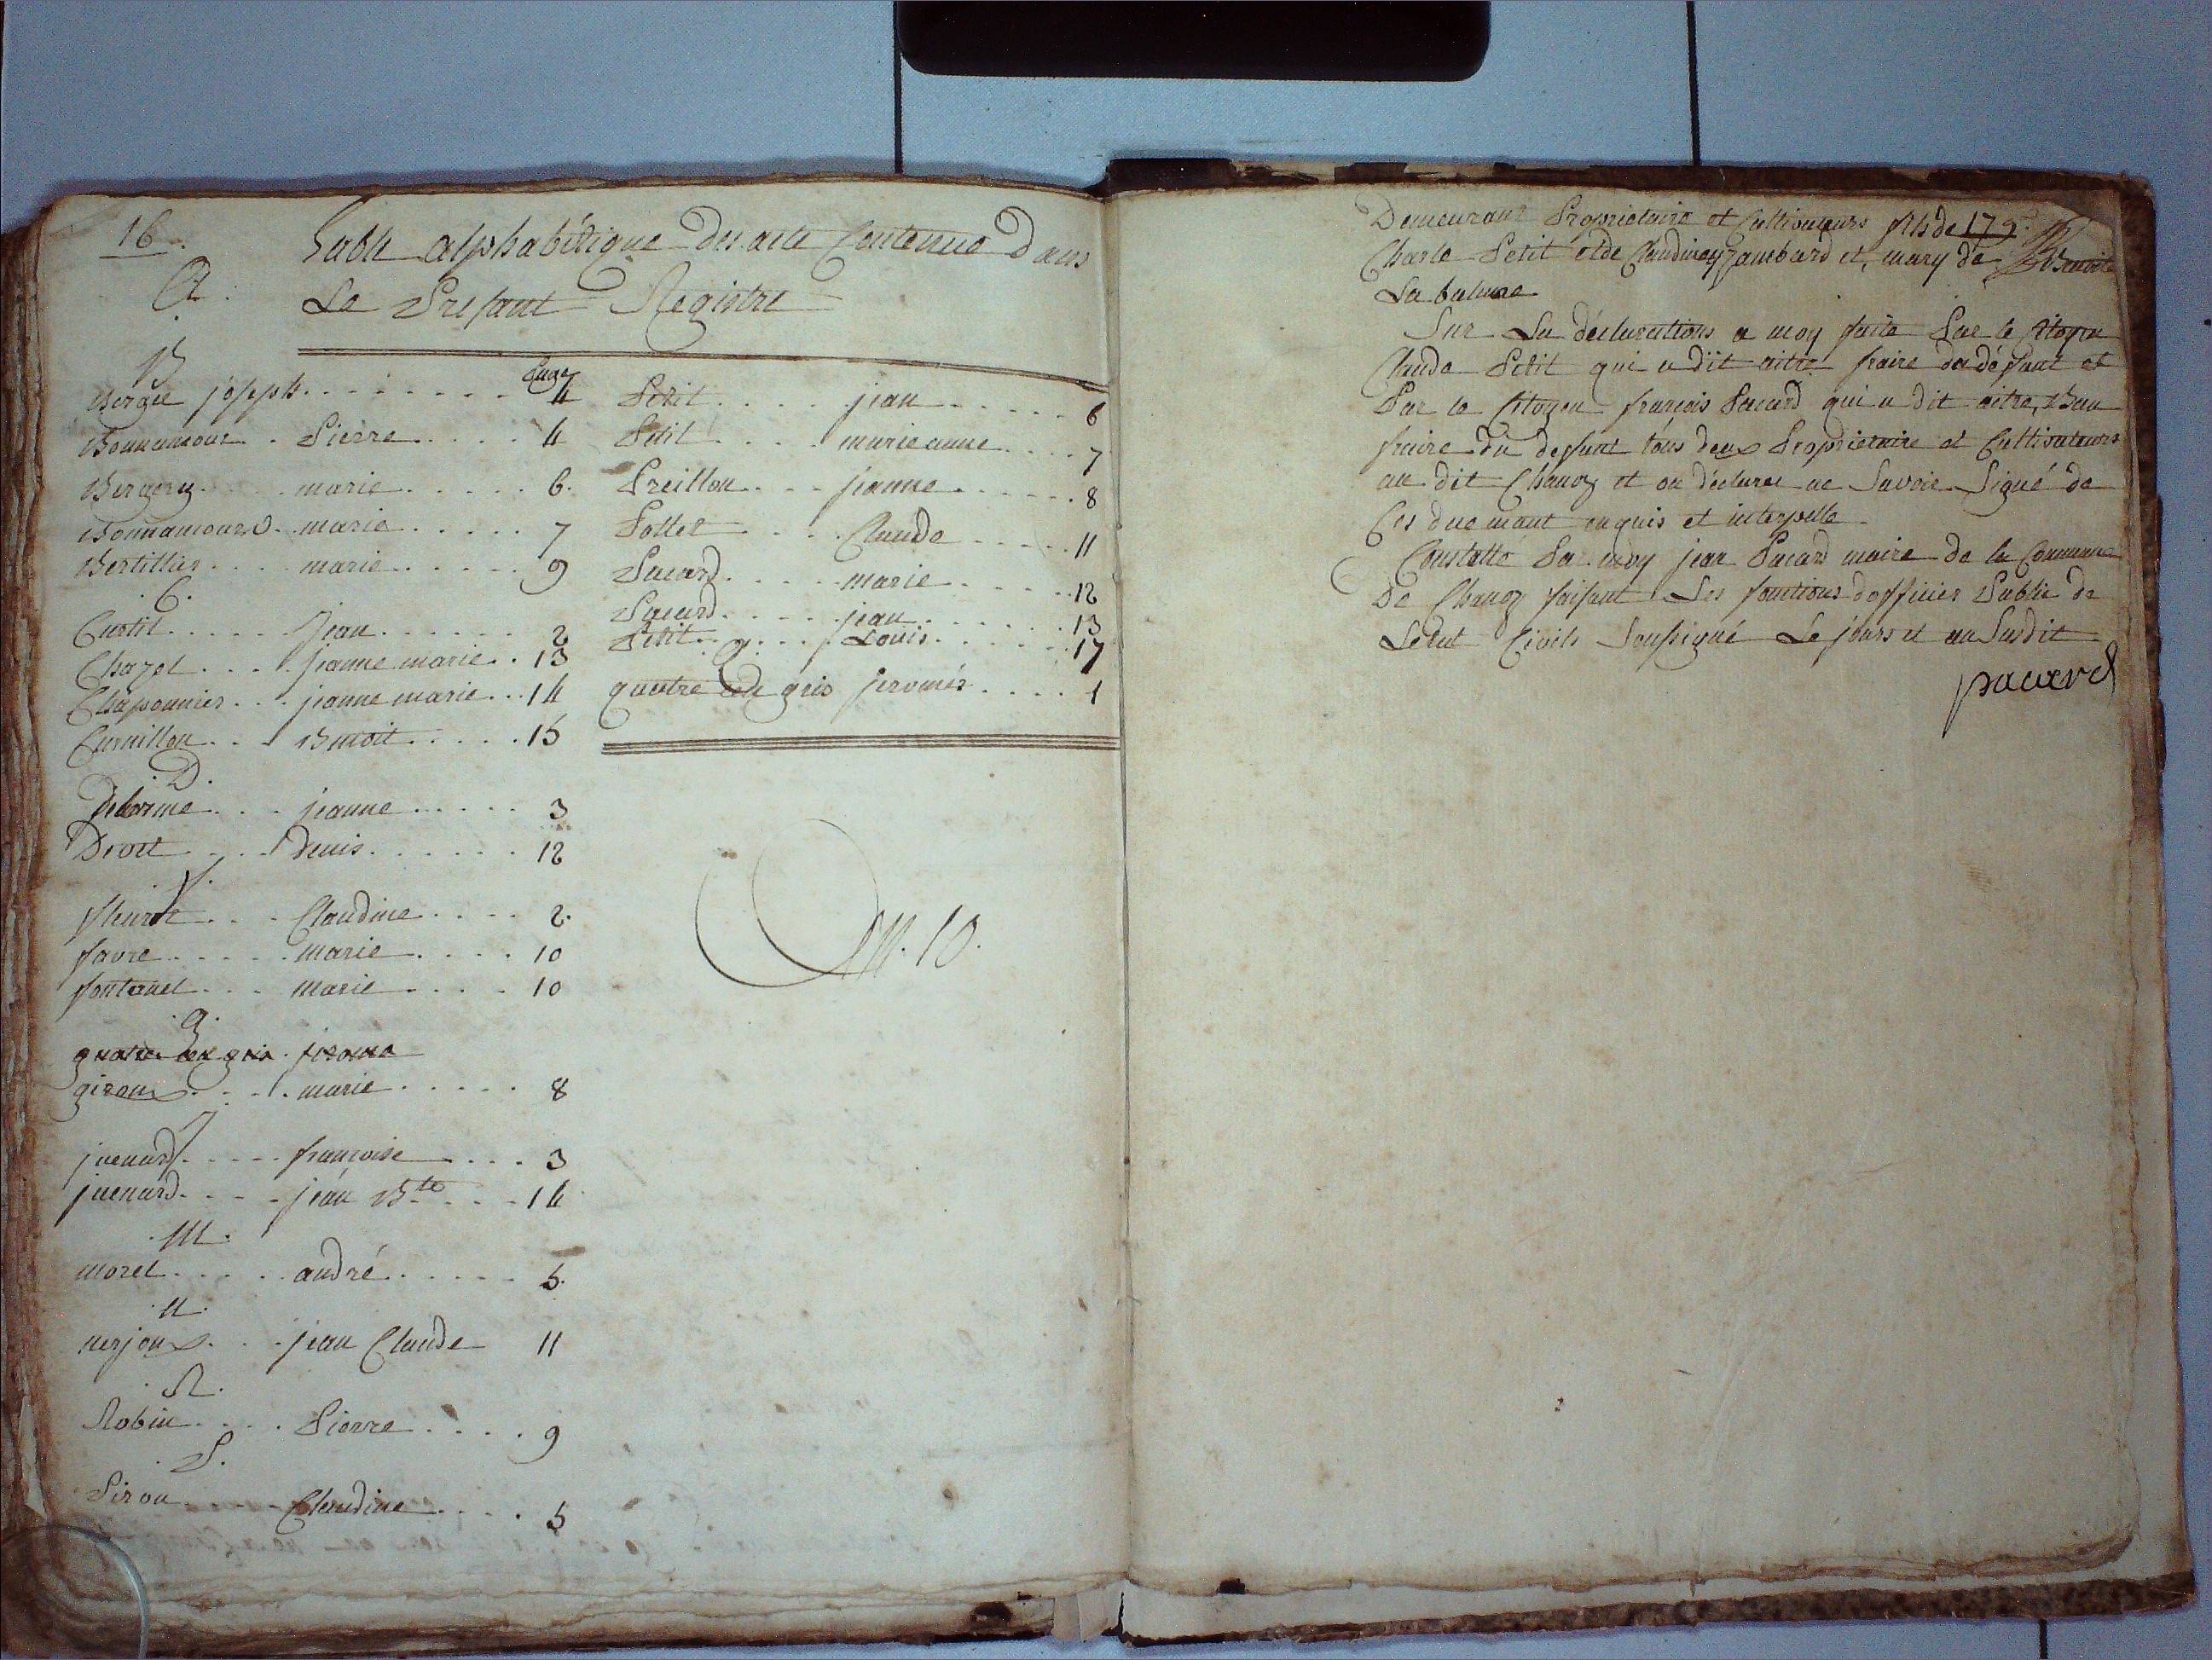 16.
Table alphabétique des acte Contenue Dans
A.
Le Présant Registre
B
Page
Bergie joseph 4
Bonnamour Pierre 4
Bergery marie 6.
Bonnamour marie 7
Bertillier marie 9
.C.
Curtil Jean 2
Chazot jeanne marie 13
Chaponnier jeanne marie 14
Curnillon Benoit 15
.D.
Delorme jeanne 3
Droit denis 12
.f.
fleuret Claudine 2.
favre marie 10
fontanel marie 10
.g.
quatre den gris jerome
giroux marie 8
J
juenard françoise 3
juenard jean Bte 14
.M.
morel andré 5.
.N.
nerjoux jean Claude 11
.R.
Robin Pierre 9
.S.
Siron Claudine 5
Petit jean 6
Petit marie anne 7
Preillon jeanne 8
Pollet Claude 11
Pacard marie 12
Pacard jean 13
Petit Louis 17
q.
quatre den gris jeromes 1
10.
Demeurant Propriétaire et Cultivateurs fils de 179
Charle Petit et de Claudine jambard et, mary de Benoite
La balme
Sur La déclarations a moy faite Par le Citoyen
Claude Petit qui a dit aitre fraire du défunt et
Par le Citoyen françois Pacard qui a dit aitre, Bau
fraire du deffunt tous deux Propriétaire et Cultivateurs
au dit Chanoz et on déclarer ne Savoir Signé de
Ces duemant enquis et interpellé
Constatté Par moy jean Pacard maire de la Commune
De Chanoz faisant Les fonctions dofficier Public de
Létat Civils Soussigné Le jours et an Susdit
pacard